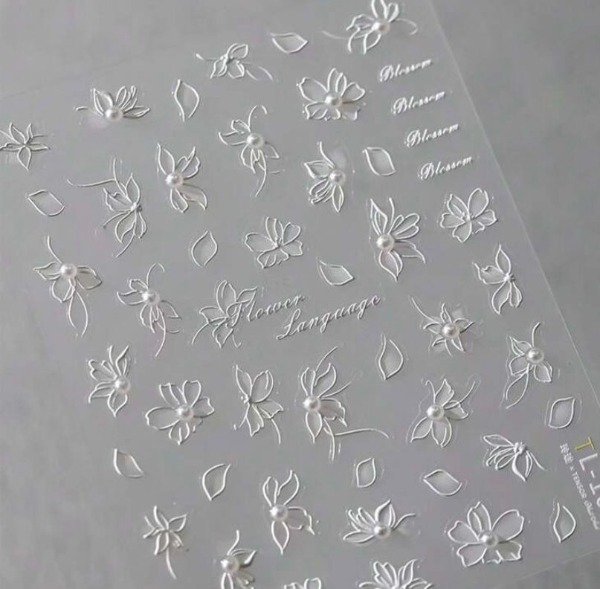 Blossom
Blossom
Blossom
Blossom
Flower
Language
TL-1